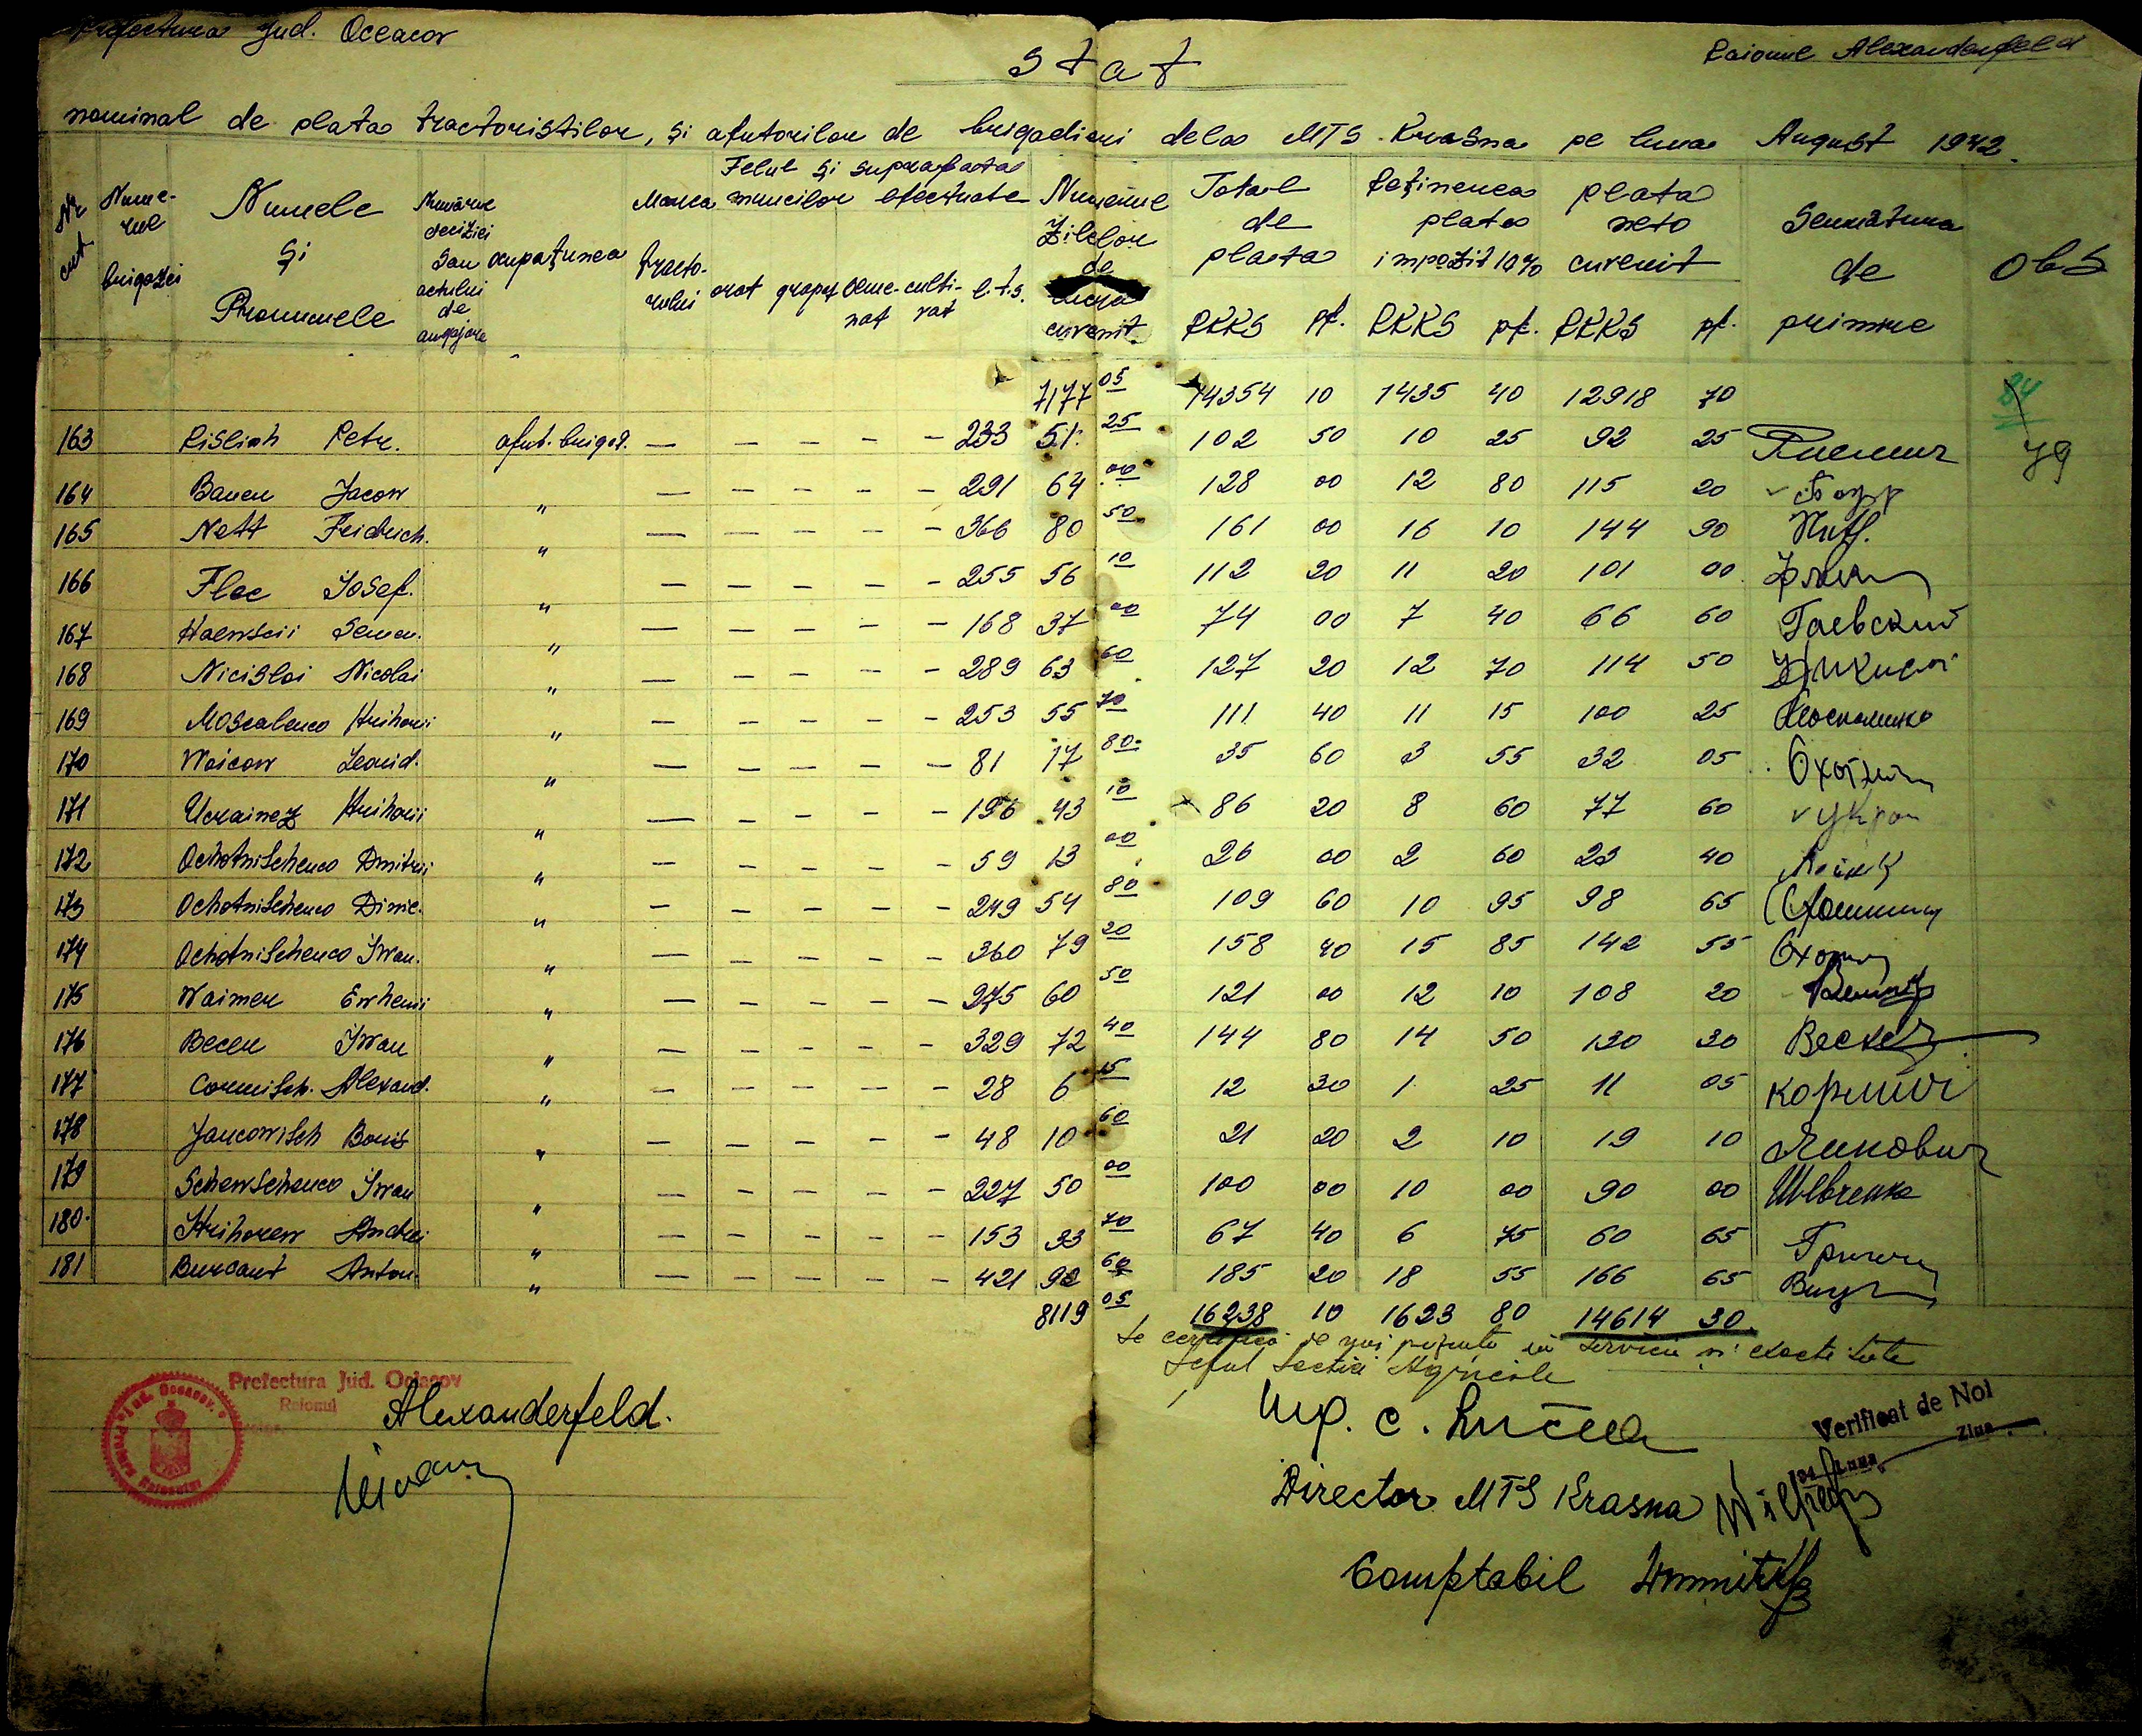 Prefectura Jud. Oceacov
Raionul Alexanderfeld
Stat
nominal de plata tractoristilor, și ajutorilor de brigadieri dela MTS. Krasna pe luna August 1942.
Nr crt
Numerul brigazei
Numele și Pronumele
Numărul deciziei sau actului de angajare
ocupațunea
Marca tractorului
Felul și suprafața muncilor efectuate
arat grapat semenat cultivat l.t.s.
Numărul Zilelor de lucru cuvenit.
Total de plata RKKS pf.
Reținerea plata impozit 10% RKKS pf.
plata neto cuvenit RKKS pf.
Semnătura de primire
Obs
7177 05 14354 10 1435 40 12918 70 84
163 Rislich Petr. ajut. brigad. — — — — — 233 51 25 102 50 10 25 92 25 79
164 Bauer Jacow " — — — — — 291 64 00 128 00 12 80 115 20
165 Nett Feidrich. " — — — — — 366 80 50 161 00 16 10 144 90
166 Flec Josef. " — — — — — 255 56 10 112 20 11 20 101 00
167 Haewscii Semen. " — — — — — 168 37 00 74 00 7 40 66 60 Гаевский
168 Nicislai Nicolai " — — — — — 289 63 60 127 20 12 70 114 50
169 Moscalenco Hrihorii " — — — — — 253 55 70 111 40 11 15 100 25
170 Woicow Leonid. " — — — — — 81 17 80 35 60 3 55 32 05
171 Ucrainez Hrihorii " — — — — — 196 43 10 86 20 8 60 77 60 Укра
172 Ochotnischenco Dmitrii " — — — — — 59 13 00 26 00 2 60 23 40
173 Ochotnischenco Dimit. " — — — — — 249 54 80 109 60 10 95 98 65
174 Ochotnischenco Iwan. " — — — — — 360 79 20 158 40 15 85 142 55
175 Waimer Ewhenii " — — — — — 275 60 50 121 00 12 10 108 20
176 Becer Iwan " — — — — — 329 72 40 144 80 14 50 130 30 Becker
177 Cormisch. Alexand. " — — — — — 28 6 15 12 30 1 25 11 05 Кормыч
178 Jancowisch Boris " — — — — — 48 10 60 21 20 2 10 19 10 Янкович
179 Schewschenco Iwan " — — — — — 227 50 00 100 00 10 00 90 00
180. Hrihorew Andrei " — — — — — 153 33 70 67 40 6 75 60 65
181 Burcant Anton. " — — — — — 421 92 60 185 20 18 55 166 65
8119 05 16238 10 1623 80 14614 30.
Se certifică de noi
în serviciu și
Șeful Secției Agricole
Prefectura Jud. Ociacov
Raionul Alexanderfeld.
Ing. C.
Verificat de Noi
Luna Ziua
Director MTS Krasna
Comptabil